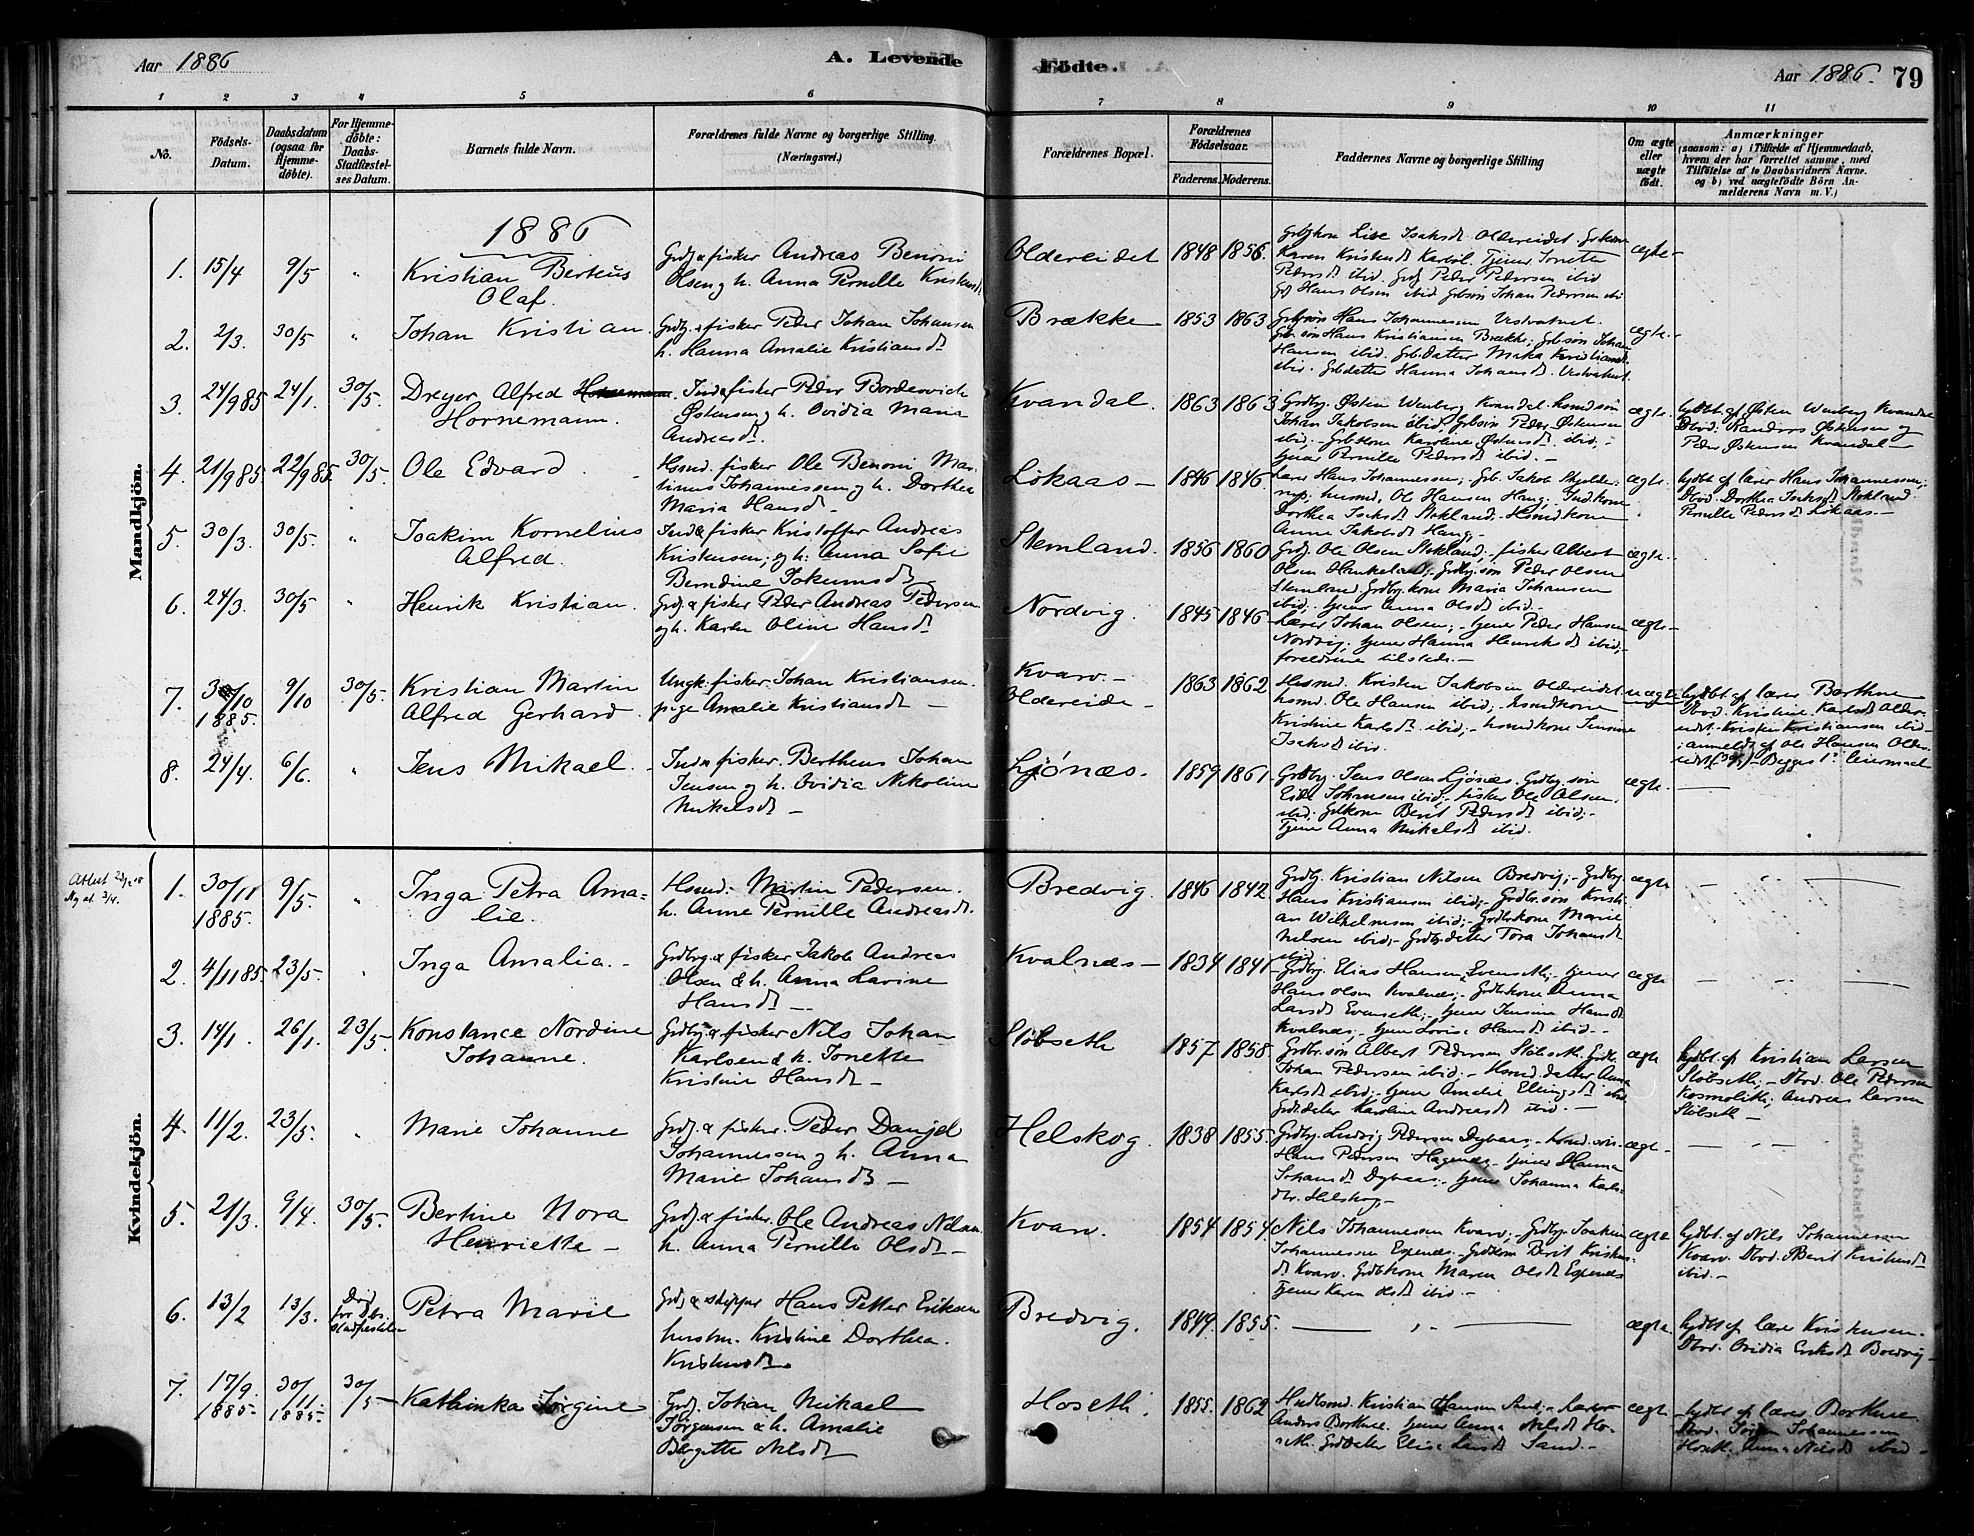 Aar 1886
A. Levende
Födte.
Aar 1886. 79
1 2 3 4 5 6 7 8 9 10 11
No.
Födsels-
Datum.
Daabsdatum
(ogsaa for
Hjemme-
döbte).
For Hjemme-
döbte:
Daabs-
Stadfæstel-
ses Datum.
Barnets fulde Navn.
Forældrenes fulde Navne og borgerlige Stilling.
(Næringsvei.)
Forældrenes Bopæl.
Forældrenes
Födselsaar.
Faderens. Moderens.
Faddernes Navne og borgerlige Stilling
Om ægte
eller
uægte
födt.
Anmærkninger
(saasom: a) i Tilfælde af Hjemmedaab,
hvem der har forrettet samme, med
Tilföielse af to Daabsvidners Navne.
og b) ved uægtefödte Börn An-
melderens Navn m. V.)
Mandkjön.
1886
1. 15/4 9/5 " Kristian Berteus
Olaf.
Grdb & fisker Andreas Benoni
Olsen og h. Anna Pernille Kristensd.
Oldereidet 1848 1856.
Gbkone Lise Isaksd. Oldereidet. Grdkone
Karen Kristensd.
Pedersd. ibid. Grdb Peder Pedersen ibid
Gb Hans Olsen ibid Gbsøn Johan Pedersen ibi
ægte-
2. 2/3. 30/5 " Johan Kristian.
Grdbg. & fisker Peder Johan Johansen
h. Hanna Amalie Kristiansd.
Brække 1853 1863
Gbsøn Hans Johannesen
Gb.søn Hans Kristiansen Brække; Gb.søn Johan
Hansen ibid. Gb.datter
ibid. Gb.datter Hanna Johansd.
ægte.-
3. 24/9 85 24/1. 30/5. Dreyer Alfred
Hornemann.
Ind & fisker Peder Bordevich
Østensen og h. Ovidia Maria
Andreasd.
Kvandal. 1863 1863
Grdbg. Østen Wenberg Kvandal. Husmdsøn
Johan Jakobsen ibid, Gbsøn Peder Østensen
ibid; Grbkone Karoline Østensd. ibid;
tjener Pernille Pedersd. ibid.-
ægte.
hjdbt. af Østen Wenberg Kvandal
Dbvd: Randor Østensen og
Peder Østensen Kvandal-
4. 21/9 85 22/9 85. 30/5. Ole Edvard.
Husmd. fisker Ole Benoni Mar-
tinus Johannessen og h. Dorthea
Maria Hansd.
Løkaas- 1846 1846.
Lærer Hans Johannessen; Gb. Jakob
husmd. Ole Hansen Haug; Indkone
Dorthea Isaksd. Stokland; Husmdkone
Anne Jakobsd. Haug;-
ægte.
hjdbt. af lærer Hans Johannessen;
Dbvd. Dorthea Isaksd. Stokland.
Pernille Pedersd. Løkaas.-
5. 30/3. 30/5. " Joakim Kornelius
Alfred.
Ind & fisker Kristoffer Andreas
Kristensen; og h. Anna Sofie
Berndine Jokumsd.
Stemland. 1856 1860
Grdb. Ole Olsen Stokland;- fisker Albert
Olsen Haukeland; Grdbg.søn Peder Olsen
Stemland. Grdbg.kone Maria Johansen
ibid. tjener Anna Olsd. ibid.-
ægte.
6. 24/3. 30/5 " Henrik Kristian.
Grdb & fisker Peder Andreas Pedersen
og h. Karen Oline Hansd.
Nordvig. 1845 1846
Lærer Johan Olsen;- tjener Peder Hansen
Nordvig; tjener Hanna Henriksd. ibid;
forældrene tilstede.-
ægte-
7. 30/10
1885. 9/10 30/5. Kristian Martin
Alfred Gerhard.
Ungk. fisker Johan Kristiansen.
pige Amalie Kristiansd. -
Kvarv.-
Oldereide- 1863 1862
Husmd. Kristen Jakobsen Oldereidet
husmd. Ole Hansen ibid;- husmdkone
Kristine Karlsd. ibid;- husmdkone Jensine
Isaksd. ibid.
uægte
hjdbt. af lærer Borthne
Dbvd. Kristine Karlsd. Older-
eidet. Kristen Kristiansen ibid-
; anmeldt af Ole Hansen Older-
eidet. Begges 1ste leiermaal
8. 24/4. 6/6. " Jens Mikael.
Ind & fisker. Bertheus Johan
Jensen og h. Ovidia Nikoline
Mikelsd. -
Ljønæs. 1859 1861
Grdbg. Jens Olsen Ljönæs. Grdbg.søn
Johansen ibid;- fisker Ole Olsen.
ibid; Grbkone Berit Pedersd. ibid;-
Tjener Anna Mikelsd. ibid.
ægte.
Kvindekjön.
Attest
1. 30/11
1885. 9/5. " Inga Petra Ama-
lie.
Husmd. Martin Pedersen.
h. Anne Pernille Andreasd.
Bredvig. 1846 1842
Grdbg. Kristian Nilsen Bredvig;- Grdbg
Hans Kristiansen ibid;- Grdb.søn Kristi-
an Wilhelmsen ibid;- Grdbkone Marie
Nilsen ibid;- Grdbg.datter Tora Johansd.
ibid
ægte
2. 4/11 85 23/5- " Inga Amalia.-
Grdbg & fisker Jakob Andreas
Olsen & h. Anna Lavine
Hansd.
Kvalnæs- 1834 1841-
Grdbg. Elias Hansen Evenseth;- tjener
Hans Olsen Kvalnæs;- Grdbkone Anna
Larsd. Evenseth;- tjener Jensine Hansd.
Kvalnæs;- tjener Lovise Hansd. ibid.-
ægte
3. 14/1. 26/1. 23/5- Konstance Nordine
Johanne.
Grdbg & fisker Nils Johan
Karlsen & h. Jonette
Kristine Hansd. -
Støbseth 1857 1858.
Grdb.søn Albert Pedersen Støbseth. Grdb.
Johan Pedersen ibid.- Husmd.datter Anna
Karlsd. ibid;- tjener Amalie Ellingsd. ibid
Grdb.datter Karoline Andreasd. ibid.-
ægte
hjdbt. af Kristian Larsen
Støbseth;- Dbvd. Ole Pedersen
Kosmolith; Andreas Larsen
Støbseth-
4. 11/2. 23/5. " Marie Johanne
Grdb & fisker. Peder Danjel
Johannessen og h. Anna
Marie Johansd. -
Helskog. 1838 1855.
Grdbg. Ludvig Pedersen Dybaas;- husmd.søn
Hans Pedersen Hagenæs;- tjener Hanna
Johansd. Dybaas;- tjener Johanna Karls-
dtr. Helskog,-
ægte-
5. 21/3. 9/4. 30/5. Bertine Nora
Henriette-
Grdb & fisker. Ole Andreas Nilsen
h. Anna Pernille Olsd. -
Kvarv. 1854 1854
Nils Johannessen Kvarv;- Grdbg. Joakim
Johannessen Espenæs. Grdbkone Berit Kristens-
d. Kvarv. Grdbkone Maren Olsd. Espenæs
Tjener Karen Olsd. ibid.-
ægte
hjdbt. af Nils Johannessen
Kvarv. Dbvd. Berit Kristensd.
ibid.-
6. 13/2 13/3. Død
før Dbs.
stadfæstelse Petra Marie
Grdb & skipper Hans Petter Eriksen
hustru. Kristine Dorthea.
Kristensd.
Bredvig. 1849. 1855.
ægte.
hjdbt af lærer Kristensen.
Dbvd. Ovidia Eriksd. Bredvig-
7. 17/9.
1885- 30/11
1885- 30/5- Kathinka Jørgine
Grdb. Johan Mikael
Jørgensen & h. Amalie
Bergitte Nilsd.
Hoseth. 1855. 1862
Kristian Hansen Sand;- Lærer
Anders Borthne. tjener Anna Nilsd. Ho-
seth. Grdbdatter Elise Larsd. Sand.-
ægte.
hjdbt af lærer Borthne
Dbvd. Jørgen Johannessen
Hoseth. Anna Nilsd. ibid-